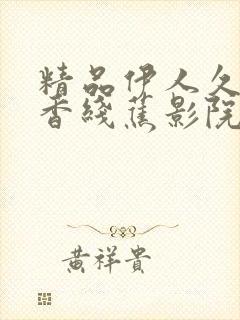 精品伊人久
香綫蕉影院
黄祥貴